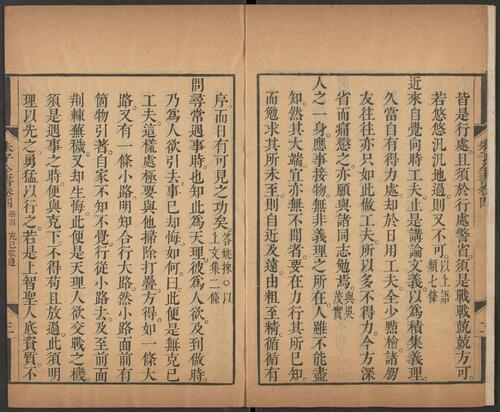 皆是行處且須於行處警省須是戰戰兢兢方可
若悠悠汎汎地過則又不可以上語類七條
近來自覺向時工夫止是講論文義以為積集義理
久當自有得力處却於日用工夫全少點檢諸朋
友往往亦只如此做工夫所以多不得力今方深
省而痛懲之亦願與諸同志勉焉與吳茂實
人之一身應事接物無非義理之所在人雖不能盡
知然其大端宜亦無不聞者要在力行其所已知
而勉求其所未至則自近及遠由粗至精循循有
序而日有可見之功矣答姚掞○以上文集二條
問尋常遇事時也知此為天理彼為人欲及到做時
乃為人欲引去事已却悔如何曰此便是無克己
工夫這樣處極要與他掃除打疊方得如一條大
路又有一條小路明知合行大路然小路面前有
箇物引著自家不知不覺行從小路去及至前面
荊棘蕪穢又却生悔此便是天理人欲交戰之機
須是遇事之時便與克下不得苟且放過此須明
理以先之勇猛以行之若是上智聖人底資質不